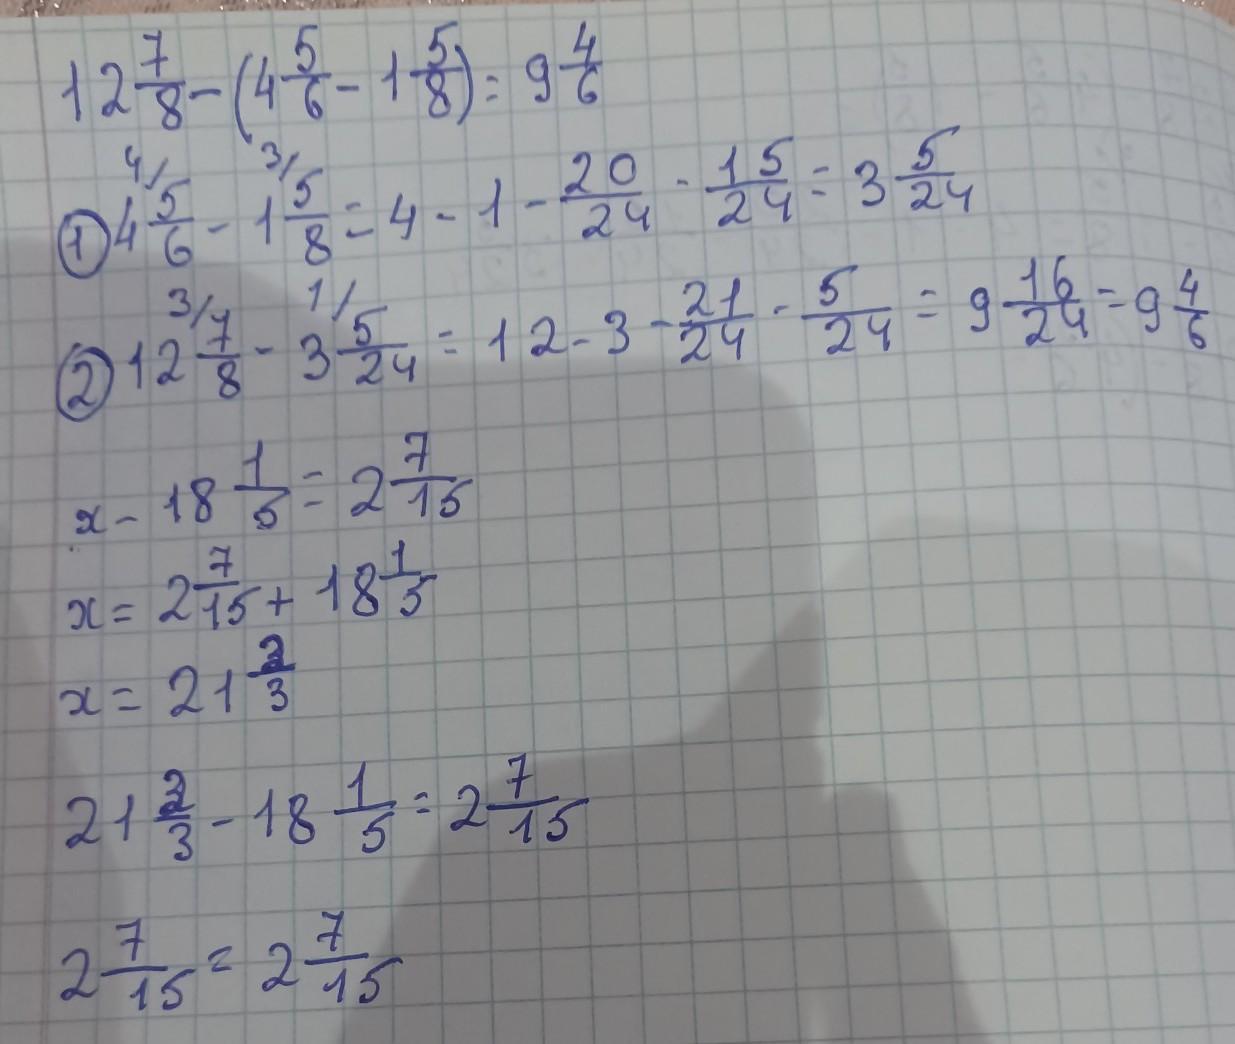 12 7/8 - (4 5/6 - 1 5/8) = 9 4/6
① 4 5/6 4/ - 1 5/8 3/ = 4 - 1 - 20/24 - 15/24 = 3 5/24
② 12 7/8 3/ - 3 5/24 1/ = 12 - 3 - 21/24 - 5/24 = 9 16/24 = 9 4/6
x - 18 1/5 = 2 7/15
x = 2 7/15 + 18 1/5
x = 21 2/3
21 2/3 - 18 1/5 = 2 7/15
2 7/15 = 2 7/15